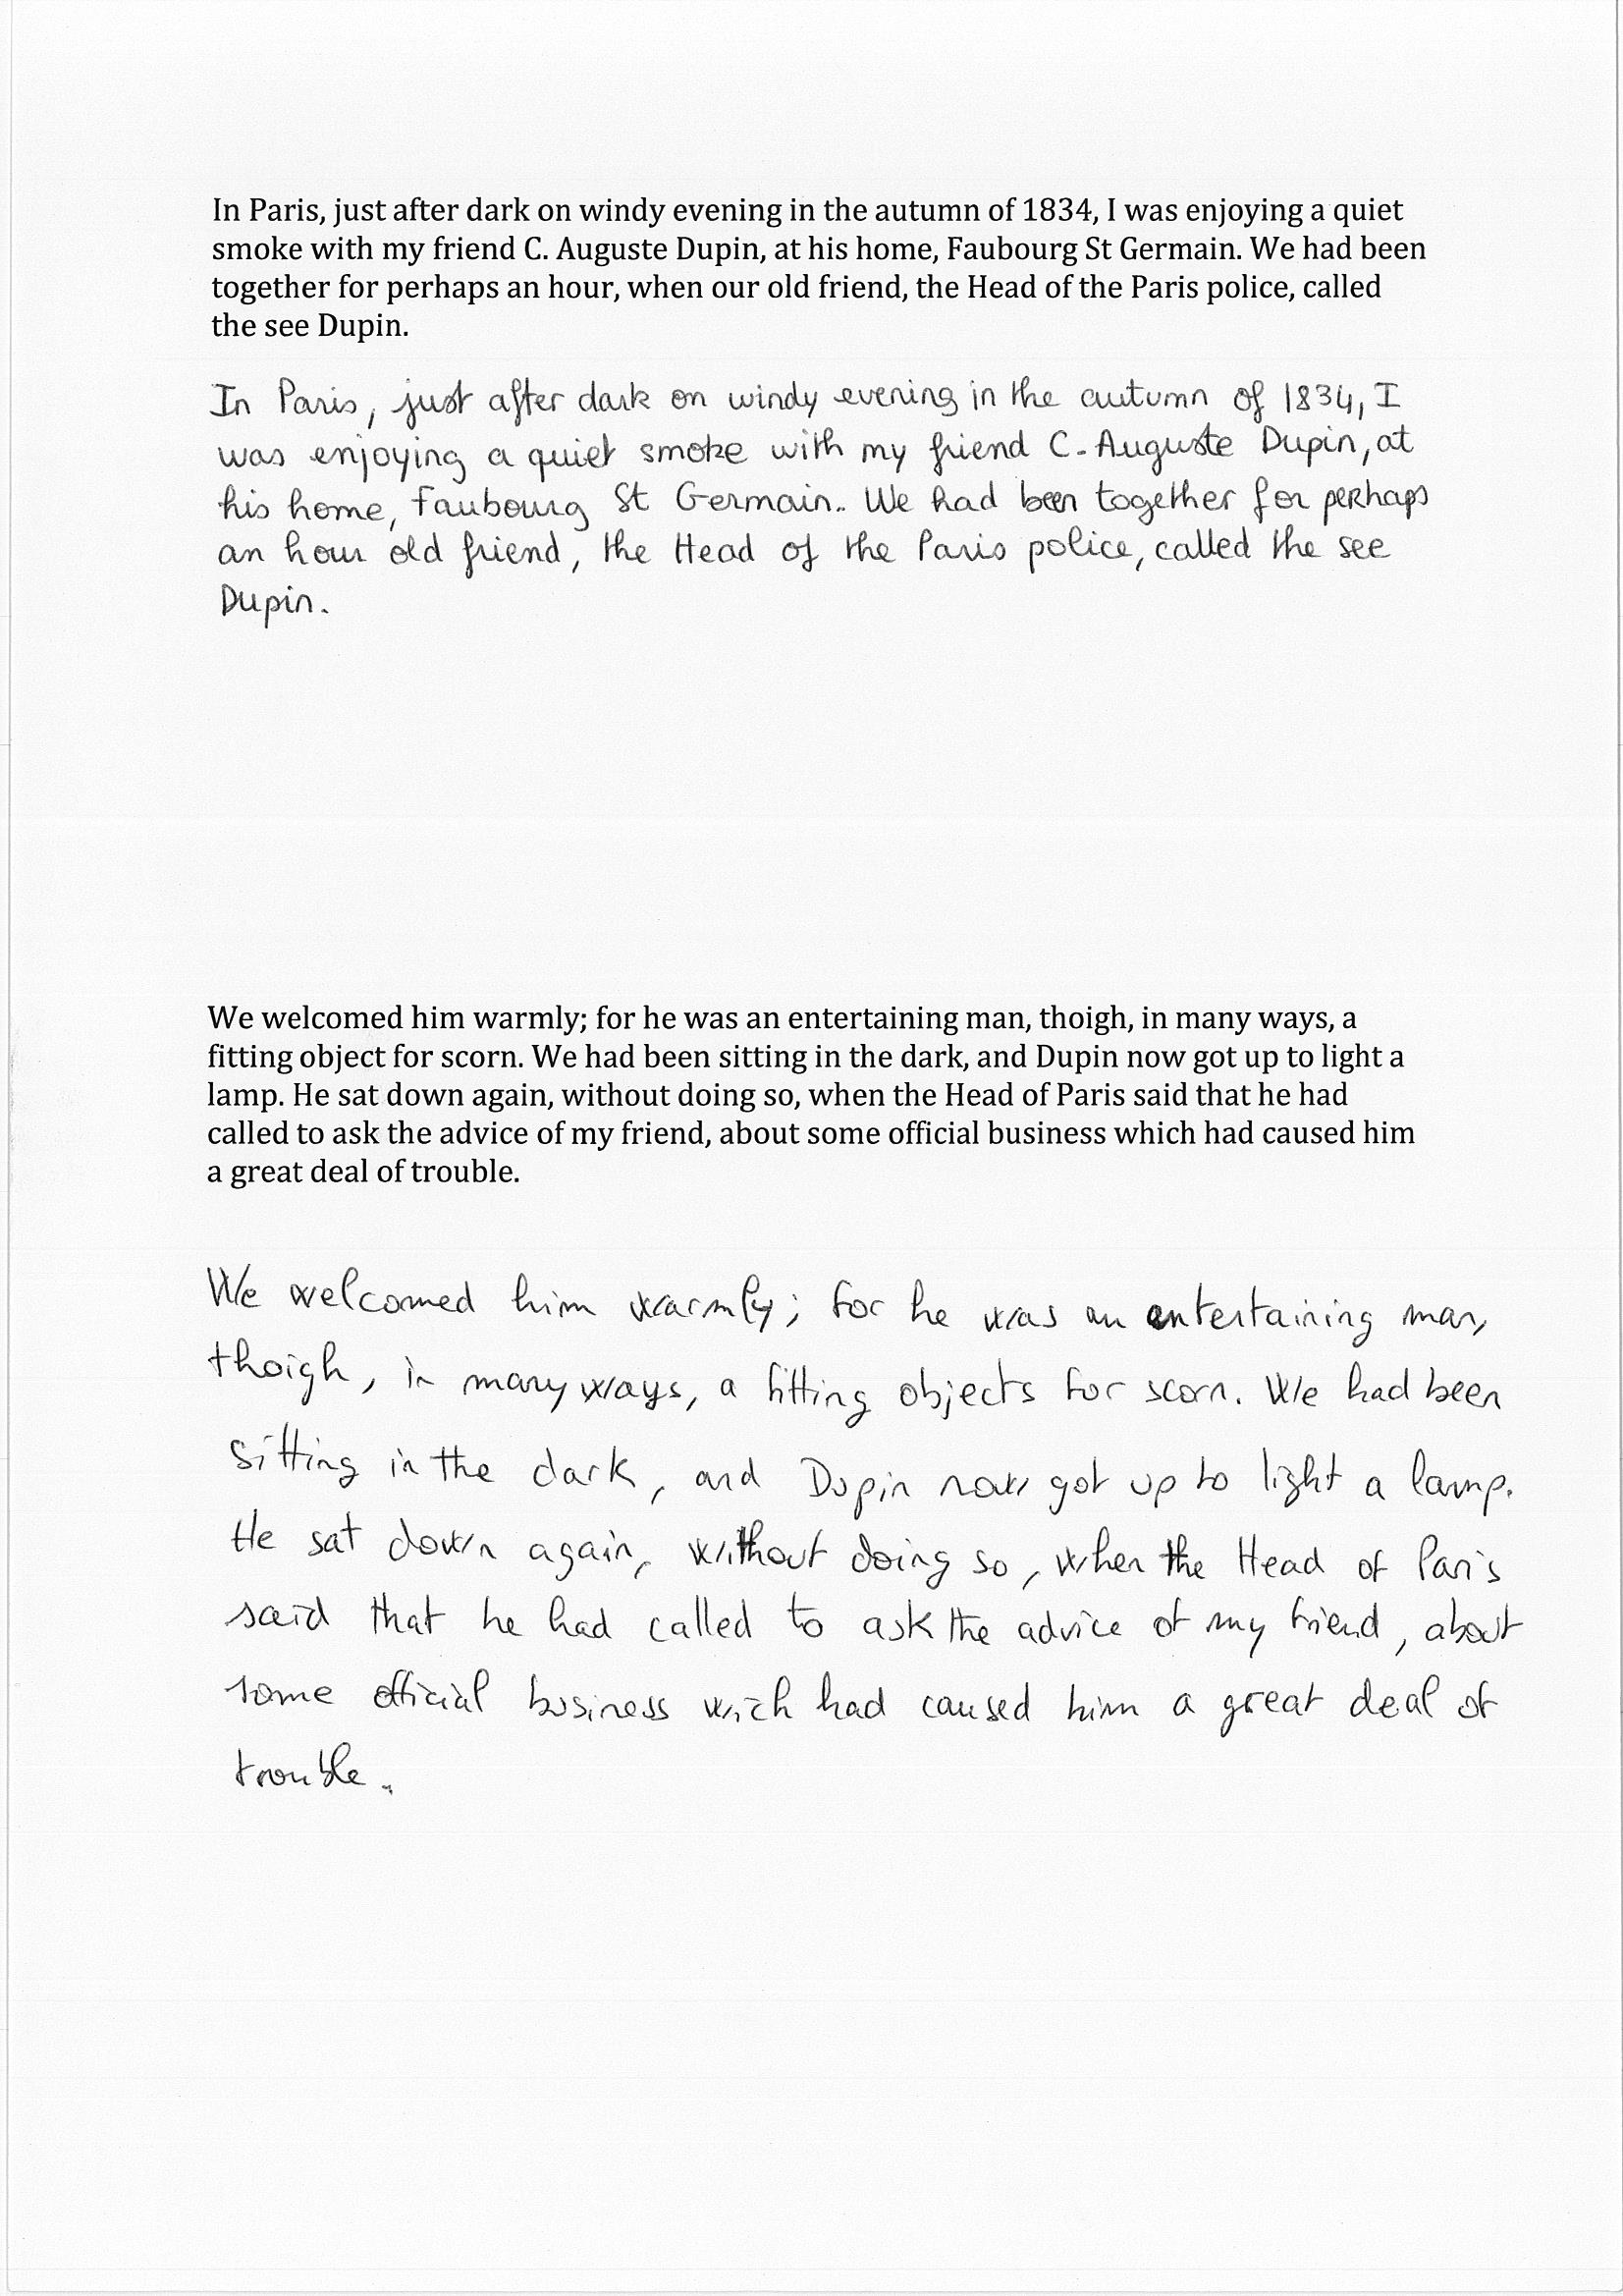 In Paris, just after dark on windy evening in the autumn of 1834, I was enjoying a quiet
smoke with my friend C. Auguste Dupin, at his home, Faubourg St Germain. We had been
together for perhaps an hour, when our old friend, the Head of the Paris police, called
the see Dupin.
In Paris, just after dark on windy evening in the autumn of 1834, I
was enjoying a quiet smoke with my friend C. Auguste Dupin, at
his home, Faubourg St Germain. We had been together for perhaps
an hour old friend, the Head of the Paris police, called the see
Dupin.
We welcomed him warmly; for he was an entertaining man, thoigh, in many ways, a
fitting object for scorn. We had been sitting in the dark, and Dupin now got up to light a
lamp. He sat down again, without doing so, when the Head of Paris said that he had
called to ask the advice of my friend, about some official business which had caused him
a great deal of trouble.
We welcomed him warmly; for he was an entertaining man,
thoigh, in many ways, a fitting objects for scorn. We had been
sitting in the dark, and Dupin now got up to light a lamp.
He sat down again, without doing so, when the Head of Paris
said that he had called to ask the advice of my friend, about
some official business wich had caused him a great deal of
trouble.